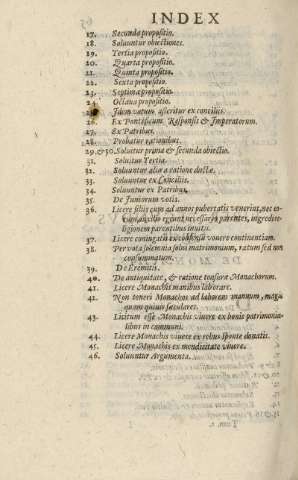 INDEX
17. Secunda propositio.
18. Soluuntur obiectiones.
19. Tertia propositio.
20. Quarta propositio.
21. Quinta propositio.
22. Sexta propositio.
23. Septima propositio.
24. Octaua propositio.
Idem votum, asseritur ex conciliis.
26. Ex Pontificum. Responsis & Imperatorum.
27. Ex Patribus.
28. Probatur rationibus.
29. & 30. Soluitur prima & secunda obiectio.
31. Soluitur Tertia.
32. Soluuntur aliæ a ratione ductæ.
33. Soluuntur ex Conciliis.
34. Soluuntur ex Patribus.
35. De Juniorum votis.
36. Licere filiis cum ad annos pubertatis venerint, nec
parentes, ingredi
ligionem parentibus inuitis.
37. Licere coniugatis ex consensu vouere continentiam.
38. Per vota solemnia solui matrimonium, ratum sed non
consummatum.
39. De Eremitis.
40. De antiquitate, & ratione tonsuræ Monachorum.
41. Licere Monachis manibus laborare.
42. Non teneri Monachos ad laborem manuum, magis
quam quiuis sæculares.
43. Licitum esse Monachis viuere ex bonis patrimonia-
libus in communi.
44. Licere Monachis viuere ex rebus sponte donatis.
45. Licere Monachis ex mendicitate viuere.
46. Soluuntur Argumenta.